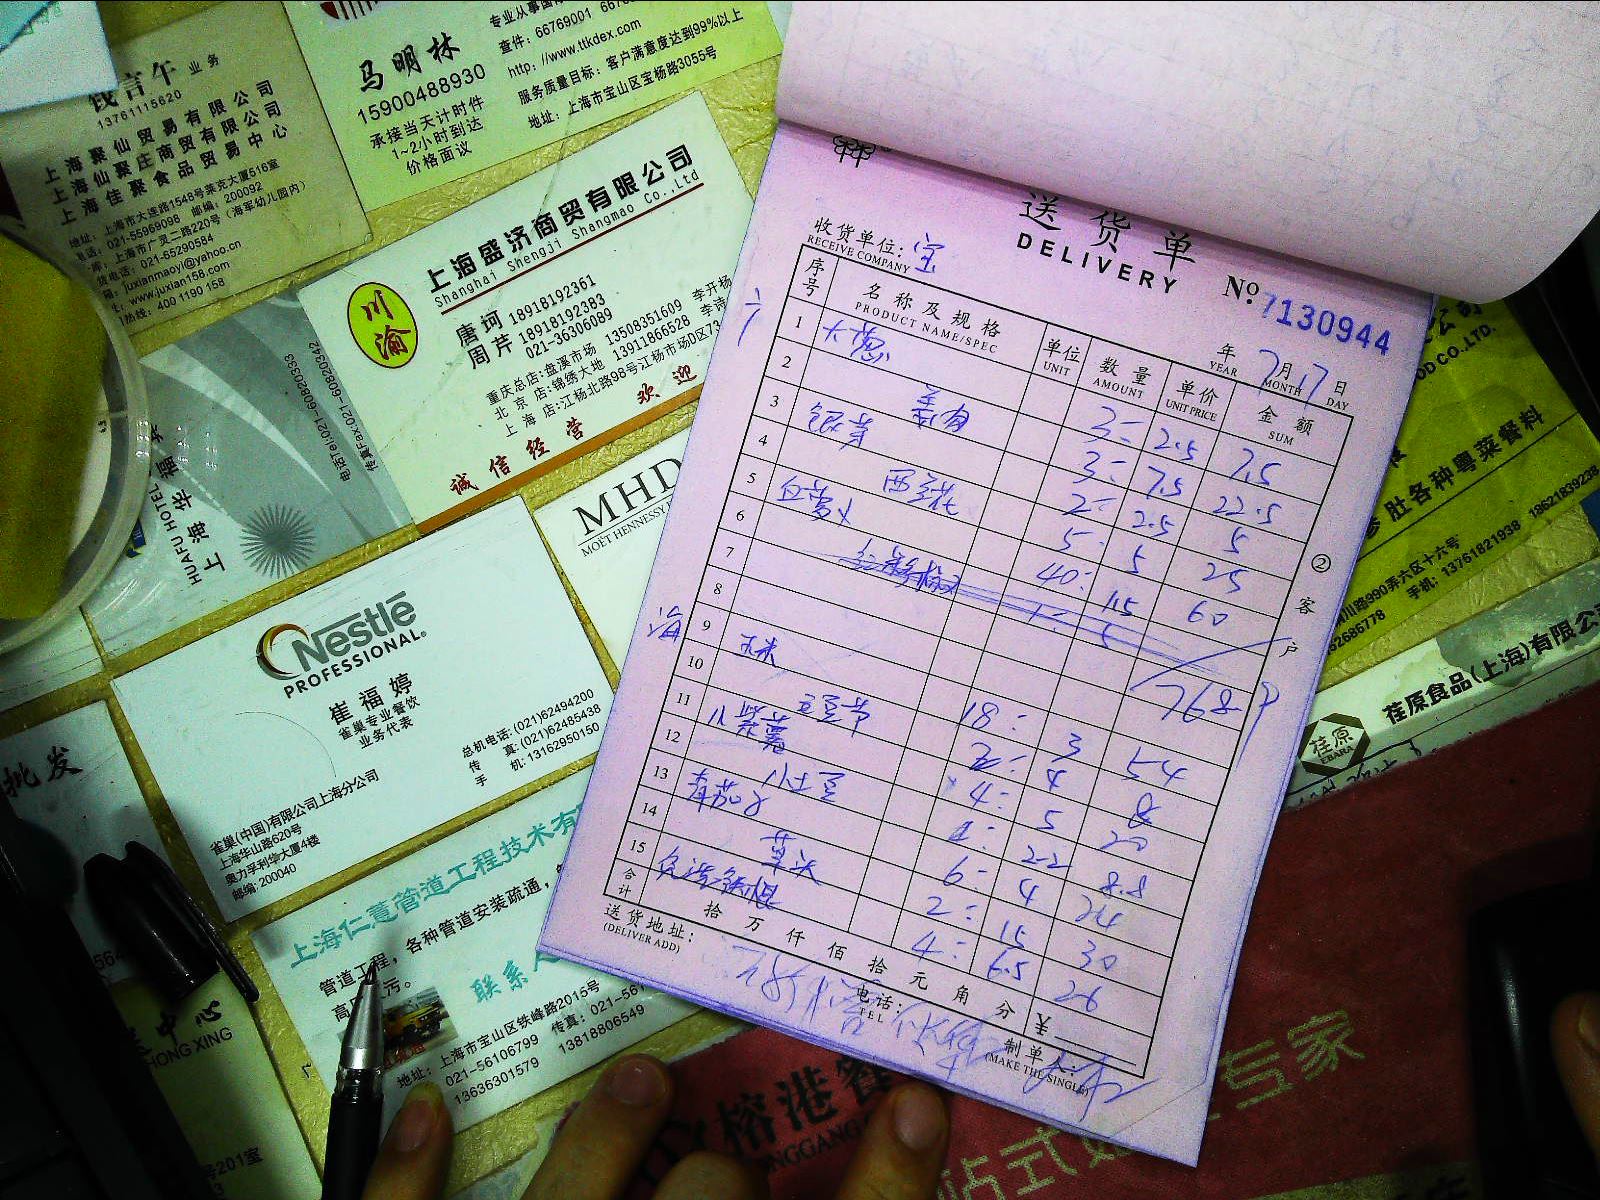 钱言午 业务
13761115620
上海聚仙贸易有限公司
上海仙聚庄商贸有限公司
上海佳聚食品贸易中心
地址：上海市大连路1548号莱克大厦516室
021-55969098 邮编：200092
上海市广灵二路220号（海军幼儿园内）
电话：021-65290584
juxianmaoyi@yahoo.cn
www.juxian158.com
热线：400 1190 158
马明林
15900488930
承接当天计时件
1~2小时到达
价格面议
查件：66769001
http：//www.ttkdex.com
服务质量目标：客户满意度达到99%以上
地址：上海市宝山区宝杨路3055号
川渝
上海盛济商贸有限公司
Shanghai Shengji Shangmao Co.,Ltd
唐珂 18918192361
周芹 18918192383
021-36306089
重庆总店:盘溪市场 13508351609 李开杨
北京店:锦绣大地 13911866528 李诗
上海店:江杨北路98号江杨市场D区73
诚信经营 欢迎
HUAFU HOTEL
上海华福
电话Tel,021-60820333
传真Fax:021-60820342
MHD
MOËT HENNESSY
Nestlé
PROFESSIONAL
崔福婷
雀巢专业餐饮
业务代表
总机电话:(021)62494200
传 真:(021)62485438
手 机:13162950150
雀巢(中国)有限公司上海分公司
上海华山路620号
奥力孚利华大厦4楼
邮编:200040
批发
上海仁慧管道工程技术有
管道工程，各种管道安装疏通，
联系人
地址：上海市宝山区铁峰路2015号
传真：021-561
021-56106799 13818806549
13636301579
中心
HONG XING
号201室
送货单
DELIVERY
No 7130944
收货单位: 宝
RECEIVE COMPANY
年 YEAR 7月 MONTH 17日 DAY
序号 名称及规格 PRODUCT NAME/SPEC 单位 UNIT 数量 AMOUNT 单价 UNIT PRICE 金额 SUM
1 大葱 3 2.5 7.5
2 3 7.5 22.5
3 银芽 2 2.5 5
4 西兰花 5 5 25
5 白萝卜 40 1.5 60
6
7
8 768
9 玉米 18 3 54
10 豆芽节 2 4 8
11 小紫薯 4 5 20
12 小土豆 4 2.2 8.8
13 青茄子 6 4 24
14 草头 2 15 30
15 4 6.5 26
合计 拾万仟佰拾元角分 ¥
送货地址:
(DELIVER ADD)
电话:
TEL
制单人:
(MAKE THE SINGLE)
②客户
OD CO.,LTD.
肚各种粤菜餐料
川路990弄六区十六号
手机：13761821938 18621839238
62686778
荏原
EBARA
荏原食品(上海)有限公
榕港餐
专家
站式